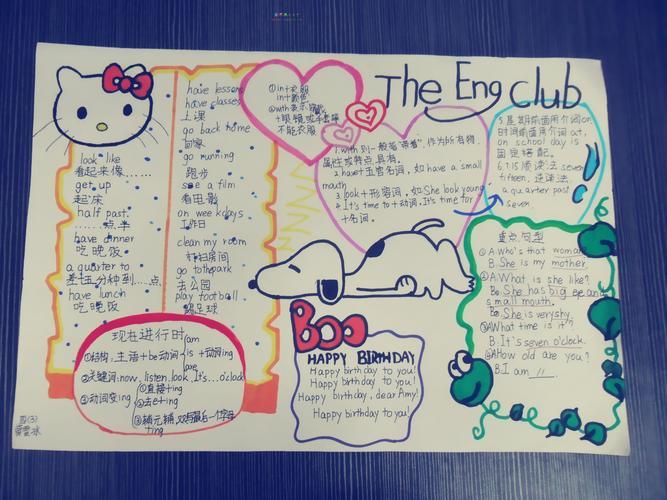 The Eng club
look like
看起来像......
get up
起床
half past.
......点半
have dinner
吃晚饭
a quarter to
差十五分钟到....点
have lunch
吃晚饭
have lessons
have classes
上课
go back home
回家
go running
跑步
see a film
看电影
on weekdays
工作日
clean my room
打扫房间
go to the park
去公园
play football
踢足球
①in+衣服
in+颜色
②with表示穿戴
+眼镜或手套等
不能衣服
1.with 则一般指"带着",作为所有物,
属性或特点具有.
2.have+五官名词,如have a small
mouth
3.look+形容词,如She look young
4.It's time to+动词,It's time for
+名词.
5.星期前面用介词on,
时间前面用介词at,
on school day is
固定搭配.
6.7:15 顺读法 seven
fifteen, 逆读法
a quarter past
seven.
重点句型
①A.Who's that woman
B.She is my mother.
②A.What is she like?
B.She has big
small mouth.
B.She is veryshy.
③What time is it?
B.It's seven o'clock.
④A.How old are you?
B.I am 11.
现在进行时
①结构,主语+be动词 am is are +动词ing
②关键词:now, listen, look, It's...o'clock
③动词变ing
①直接+ing
②去e+ing
③辅元辅,双写最后一个字母
+ing
Boo
HAPPY BIRTHDAY
Happy birthday to you!
Happy birthday to you!
Happy birthday, dear Amy!
Happy birthday to you!